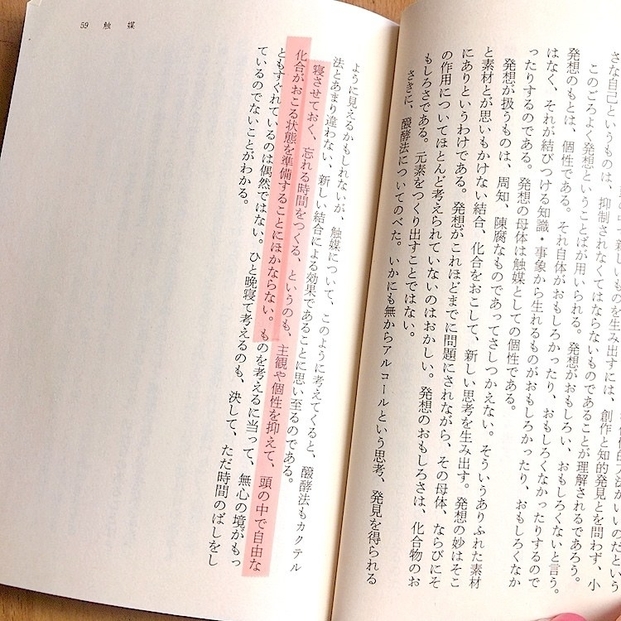 的方法がいいのだという
新しいものを生み出すには、創作と知的発見とを問わず、小
さな自己というものは、抑制されなくてはならないものであることが理解されるであろう。
このごろよく発想ということばが用いられる。発想がおもしろい、おもしろくないと言う。
発想のもとは、個性である。それ自体がおもしろかったり、おもしろくなかったりするので
はなく、それが結びつける知識・事象から生れるものがおもしろかったり、おもしろくなか
ったりするのである。発想の母体は触媒としての個性である。
発想が扱うものは、周知、陳腐なものであってさしつかえない。そういうありふれた素材
と素材とが思いもかけない結合、化合をおこして、新しい思考を生み出す。発想の妙はそこ
にありというわけである。発想がこれほどまでに問題にされながら、その母体、ならびにそ
の作用についてほとんど考えられていないのはおかしい。発想のおもしろさは、化合物のお
もしろさである。元素をつくり出すことではない。
さきに、醱酵法についてのべた。いかにも無からアルコールという思考、発見を得られる
59 触媒
ように見えるかもしれないが、触媒について、このように考えてくると、醱酵法もカクテル
法とあまり違わない、新しい結合による効果であることに思い至るのである。
寝させておく、忘れる時間をつくる、というのも、主観や個性を抑えて、頭の中で自由な
化合がおこる状態を準備することにほかならない。ものを考えるに当って、無心の境がもっ
ともすぐれているのは偶然ではない。ひと晩寝て考えるのも、決して、ただ時間のばしをし
ているのでないことがわかる。